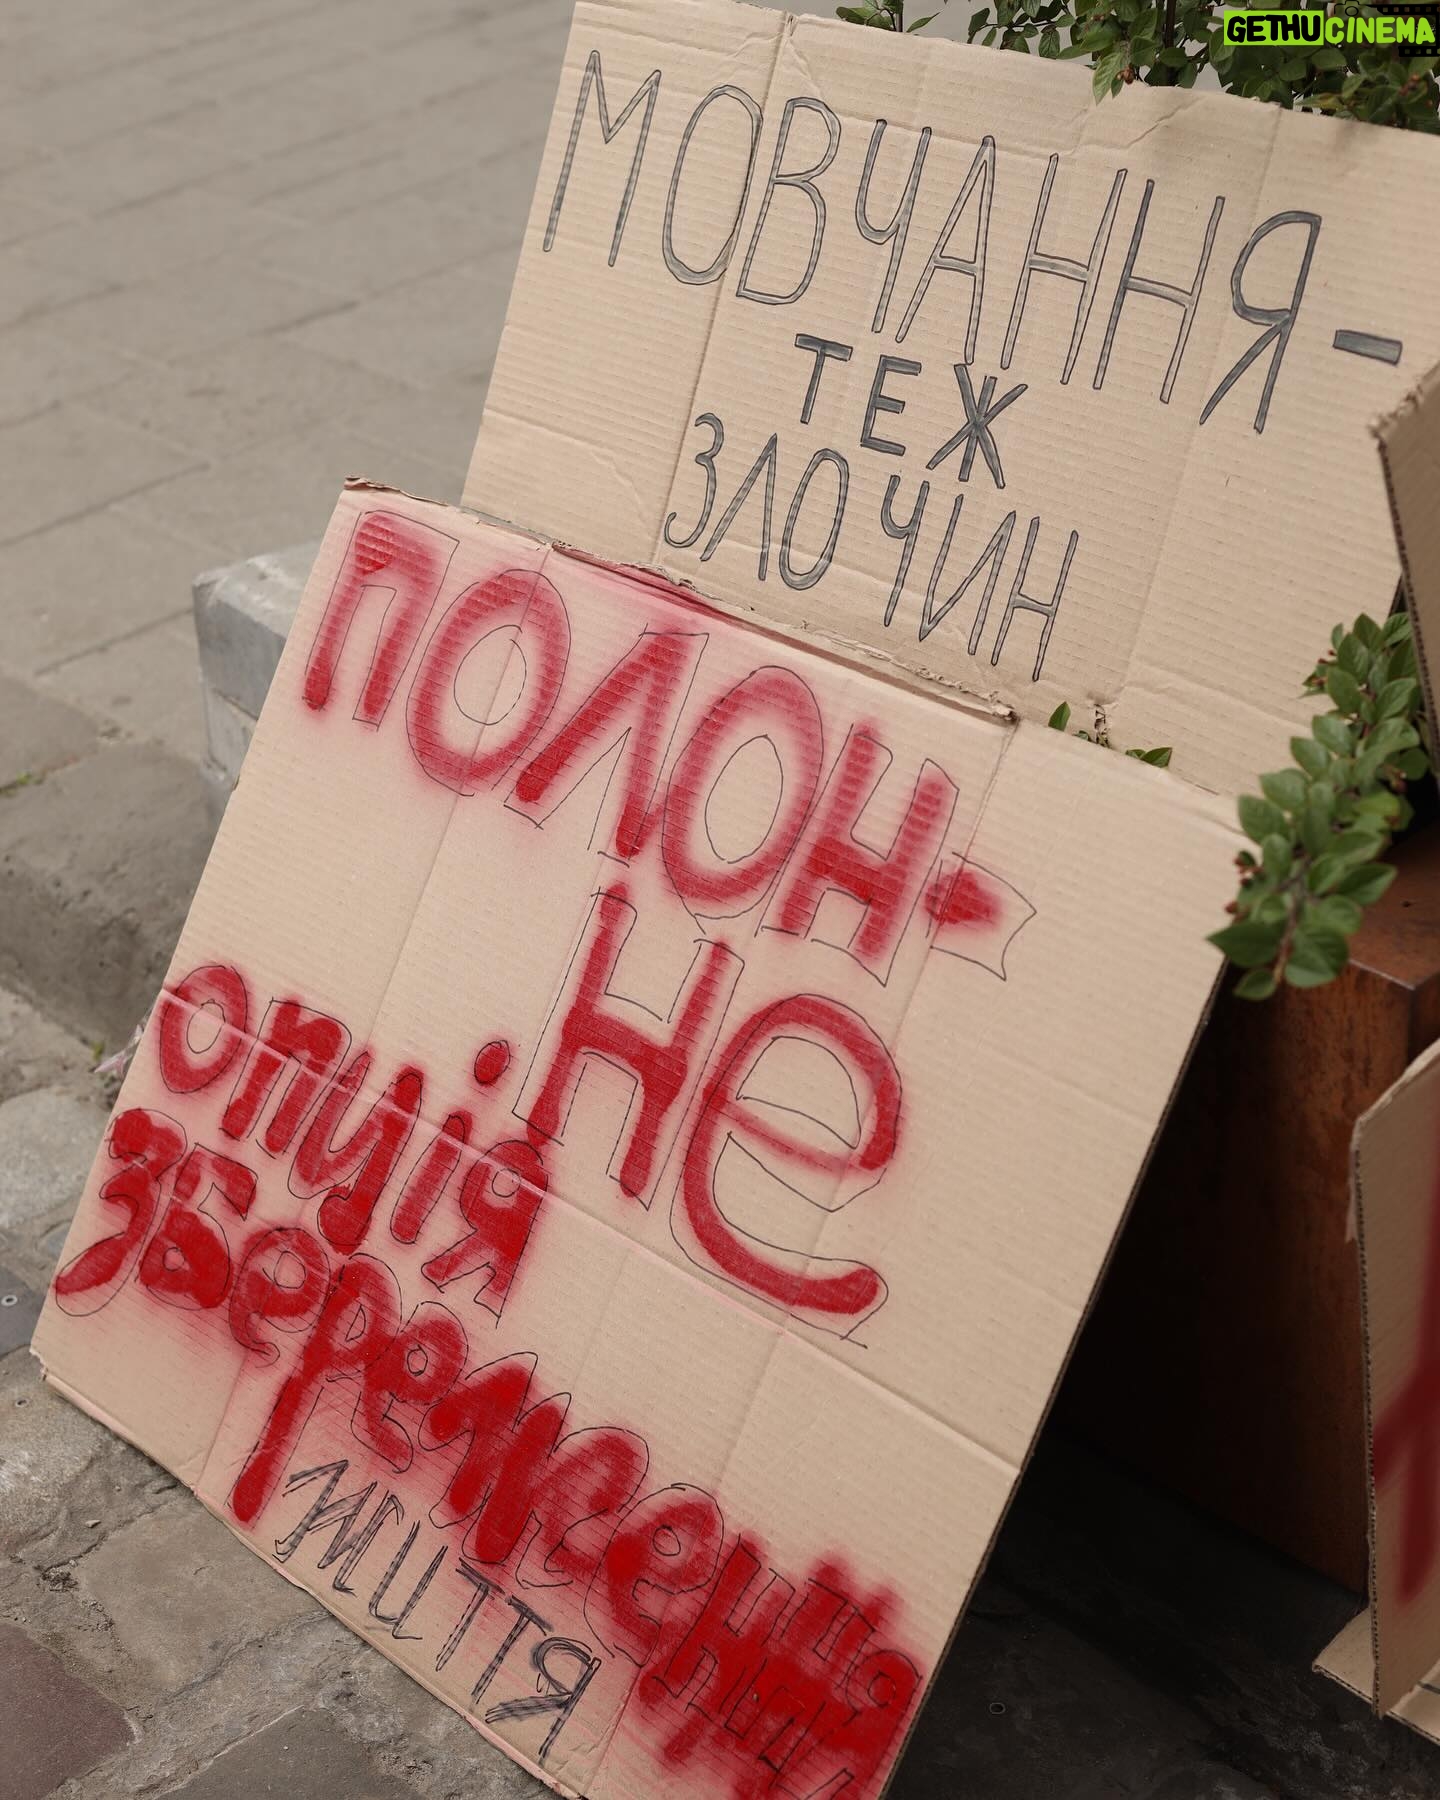 GETHUCINEMA
МОВЧАННЯ-
ТЕЖ
ЗЛОЧИН
ПОЛОН-
Не
опція
збереження
ЖИТТЯ